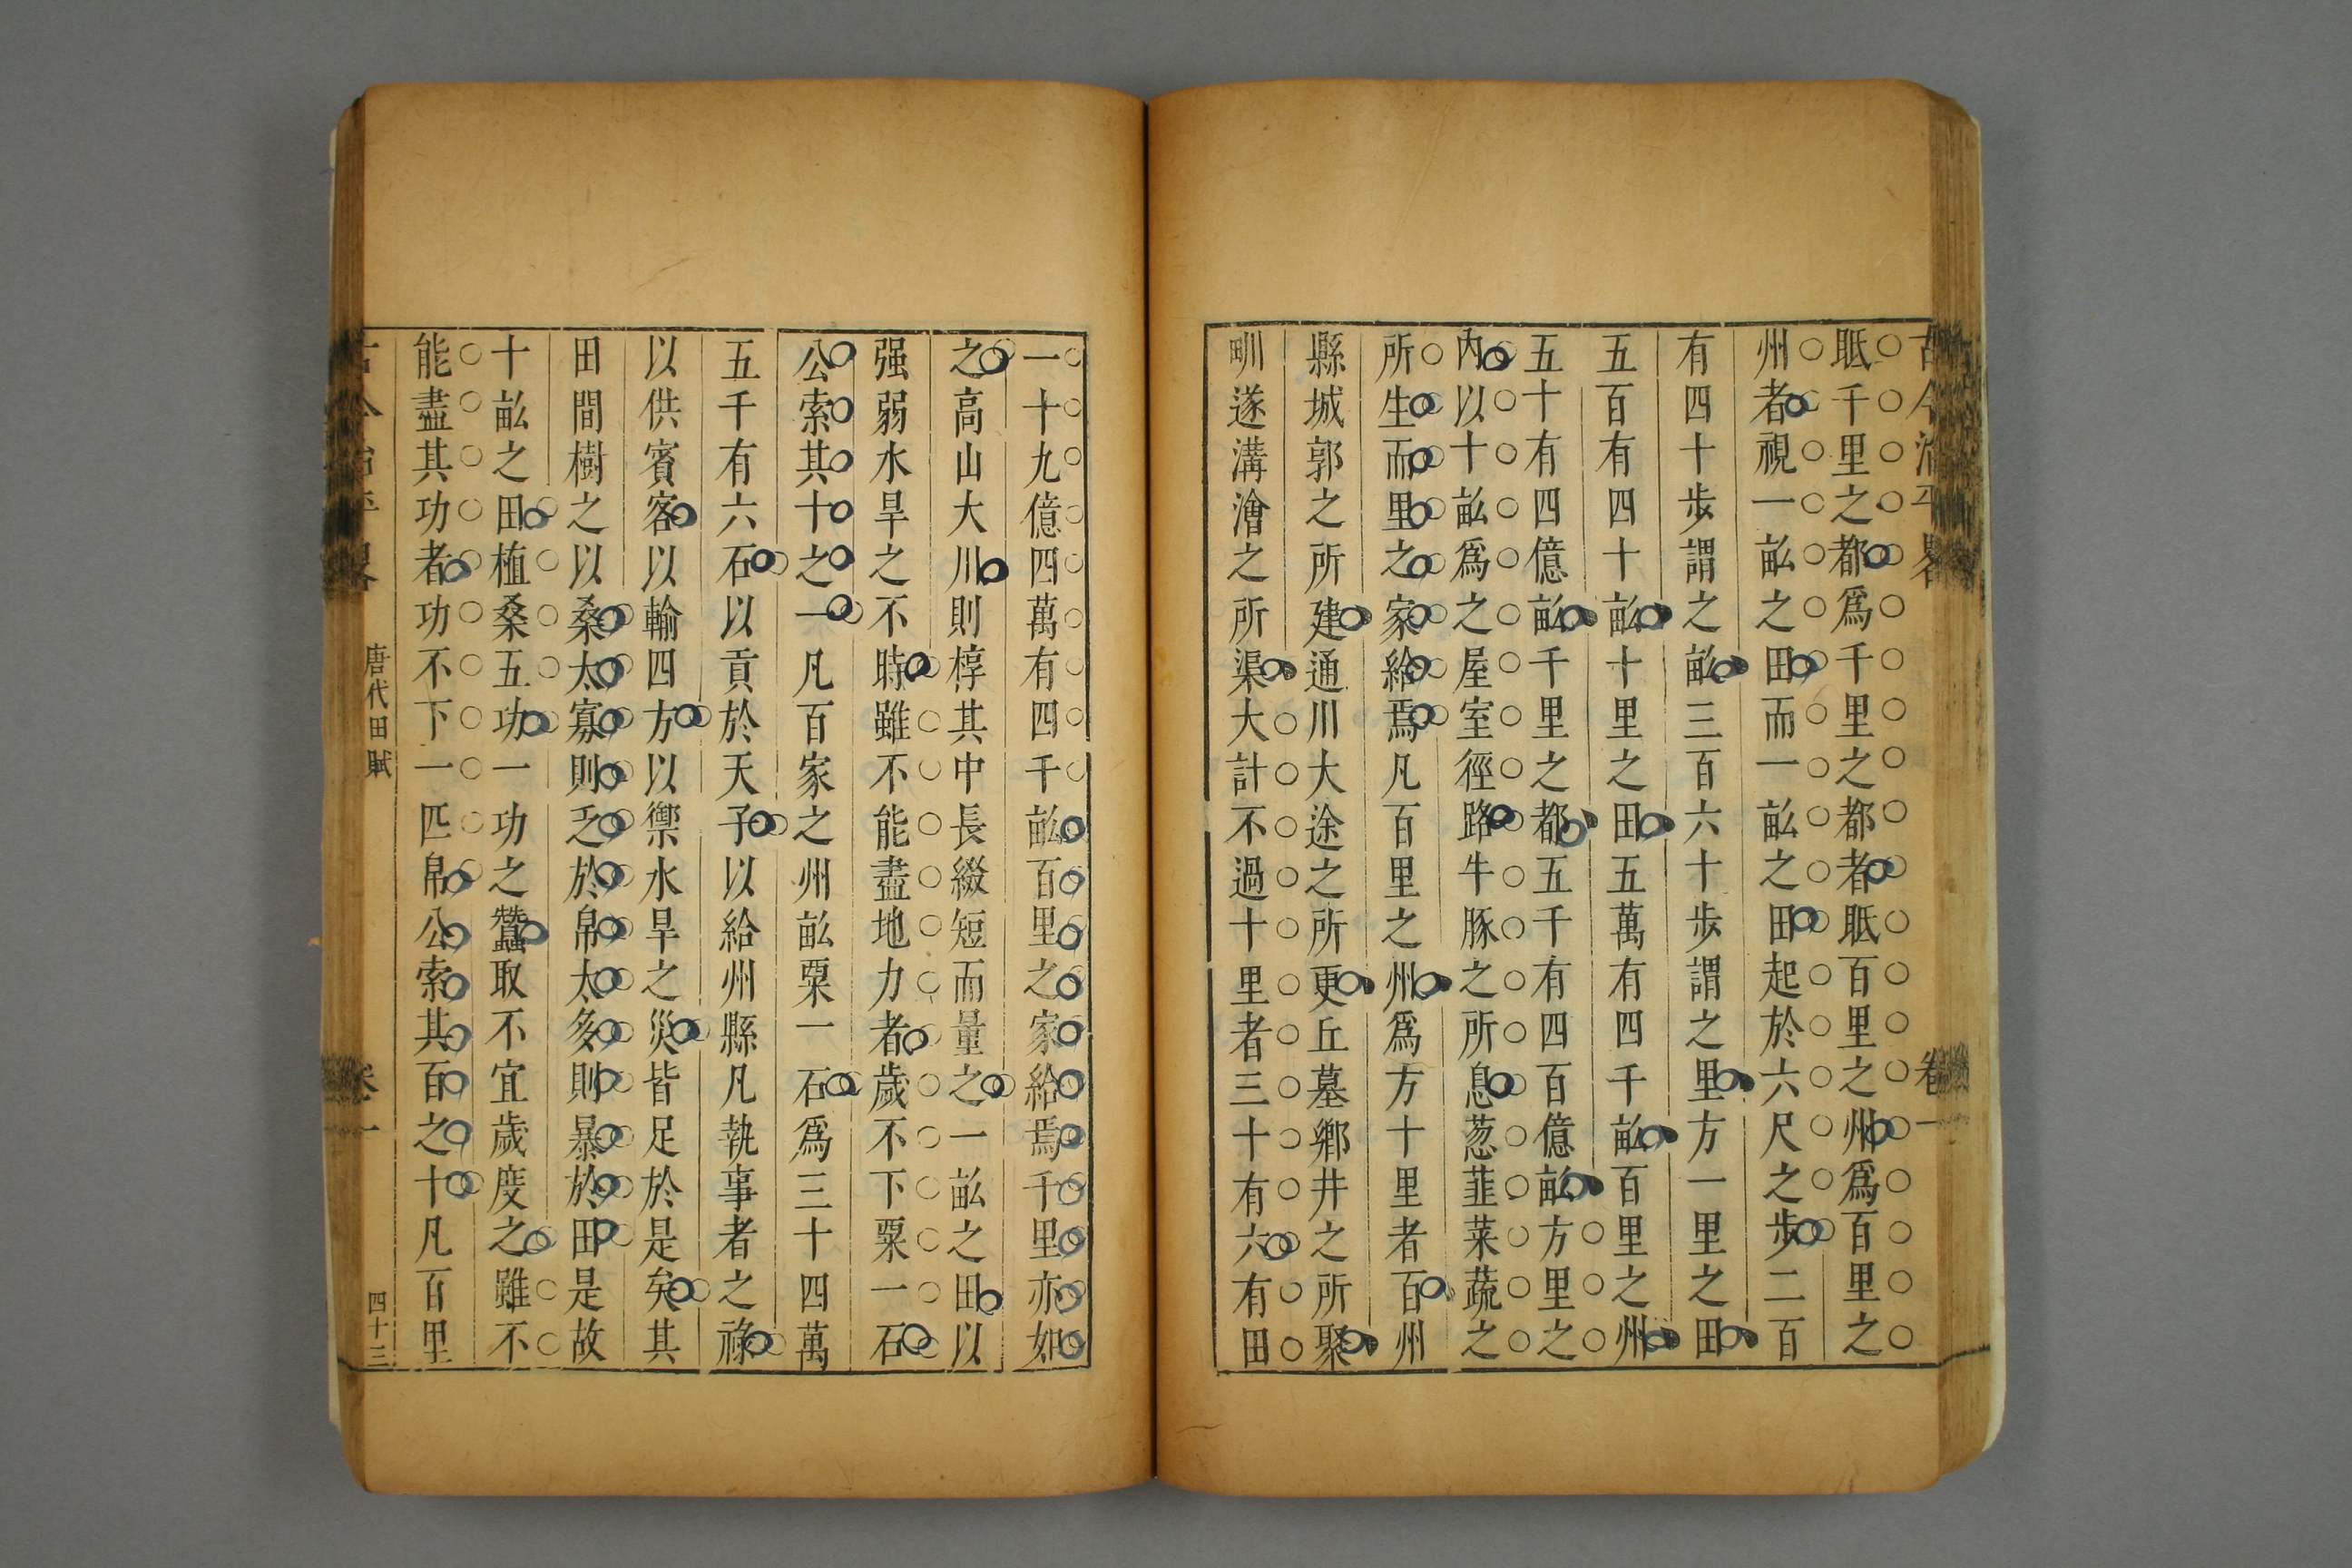 古今治平畧
卷一
眂千里之都爲千里之都者眂百里之州爲百里之
州者視一畝之田而一畝之田起於六尺之步二百
有四十歩謂之畝三百六十歩謂之里方一里之田
五百有四十畝十里之田五萬有四千畝百里之州
五十有四億畝千里之都五千有四百億畝方里之
內以十畝爲之屋室徑路牛豚之所息葱韮菜蔬之
所生而里之家給焉凡百里之州爲方十里者百州
縣城郭之所建通川大途之所更丘墓鄉井之所聚
甽遂溝澮之所渠大計不過十里者三十有六有田
一十九億四萬有四千畝百里之家給焉千里亦如
之高山大川則椁其中長綴短而量之一畝之田以
强弱水旱之不時雖不能盡地力者歲不下粟一石
公索其十之一凡百家之州畝粟一石爲三十四萬
五千有六石以貢於天子以給州縣凡執事者之祿
以供賓客以輸四方以禦水旱之災皆足於是矣其
田間樹之以桑太寡則乏於帛太多則暴於田是故
十畝之田植桑五功一功之蠶取不宜歲度之雖不
能盡其功者功不下一匹帛公索其百之十凡百里
古今治平畧
唐代田賦
卷一
四十三